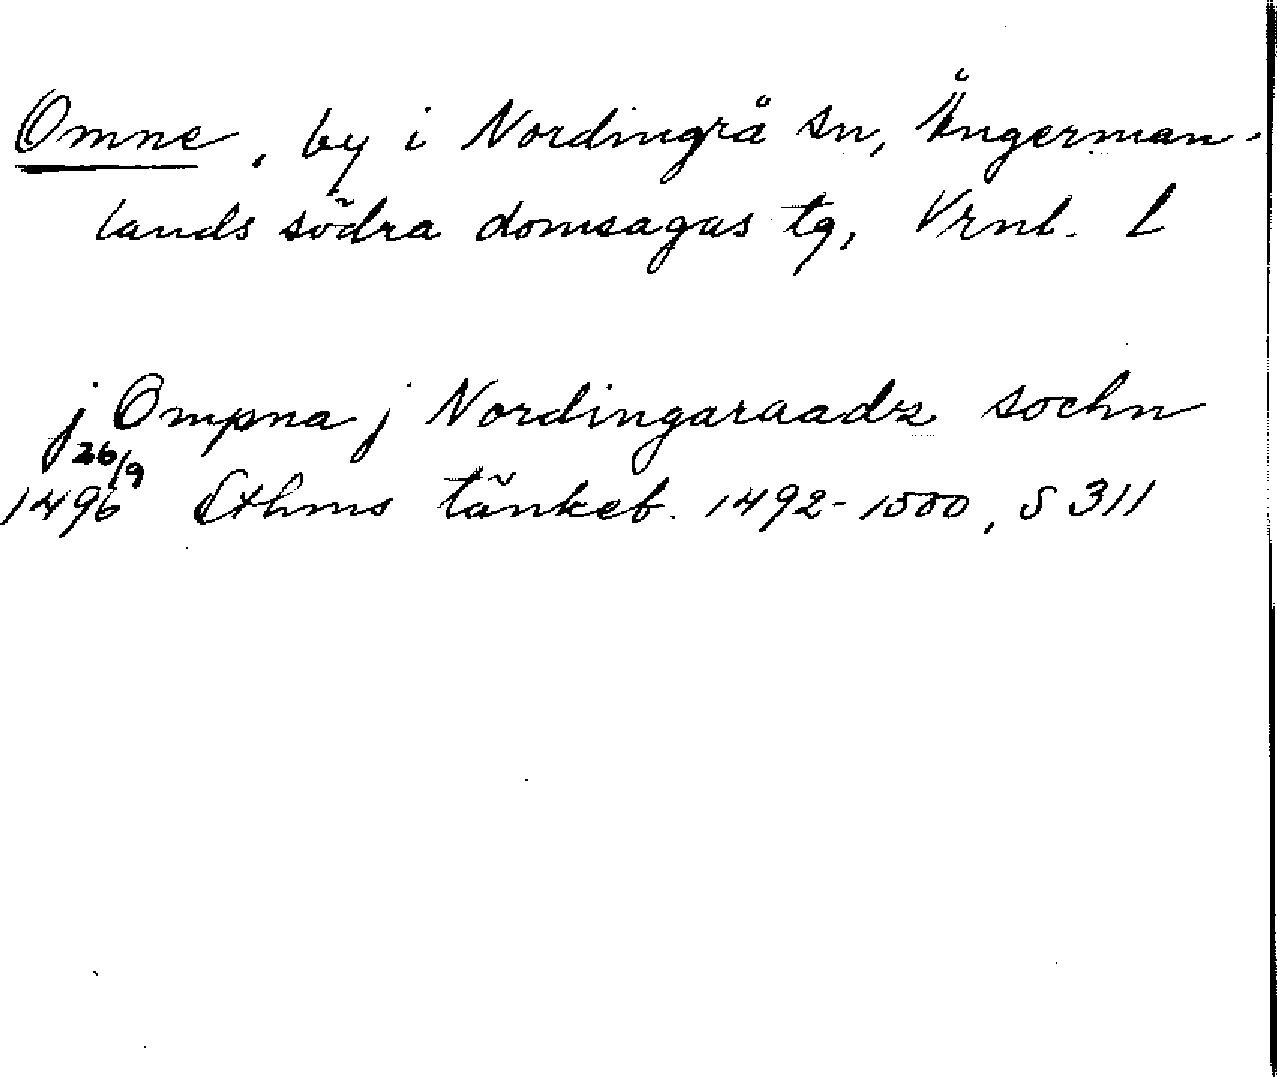 Omne, by i Nordingrå sn, Ångerman-
lands södra domsagas tg, Vrnl. L
j Ompna j Nordingaraadz sochn
1496 26/9 Sthms tänkeb. 1492-1500, S 311